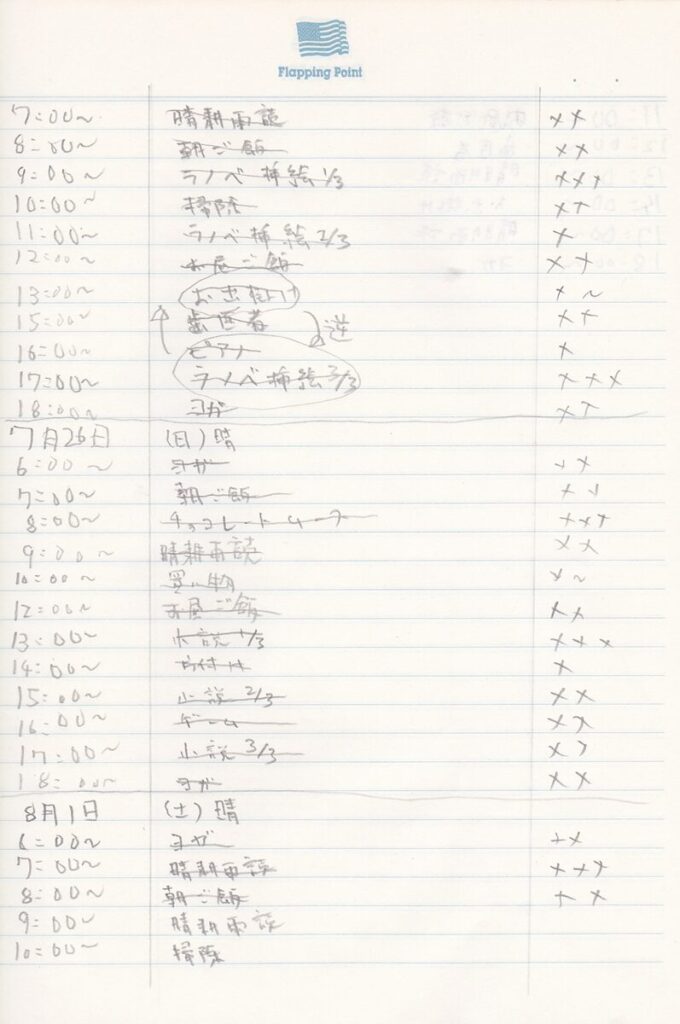 Flapping Point
7:00~ 晴耕雨読 ××
8:00~ 朝ご飯 ××
9:00~ ラノベ挿絵1/3 ×××
10:00~ 掃除 ××
11:00~ ラノベ挿絵2/3 ×
12:00~ お昼ご飯 ××
13:00~ お出掛け × ~
15:00~ 歯医者 ××
逆
16:00~ ピアノ ×
17:00~ ラノベ挿絵3/3 ×××
18:00~ ヨガ ××
7月26日 (日)晴
6:00~ ヨガ ××
7:00~ 朝ご飯 ××
8:00~ チョコレートムース ×××
9:00~ 晴耕雨読 ××
10:00~ 買い物 × ~
12:00~ お昼ご飯 ××
13:00~ 小説1/3 ×××
14:00~ 片付け ×
15:00~ 小説2/3 ××
16:00~ ゲーム ××
17:00~ 小説3/3 ××
18:00~ ヨガ ××
8月1日 (土)晴
6:00~ ヨガ ××
7:00~ 晴耕雨読 ×××
8:00~ 朝ご飯 ××
9:00~ 晴耕雨読
10:00~ 掃除